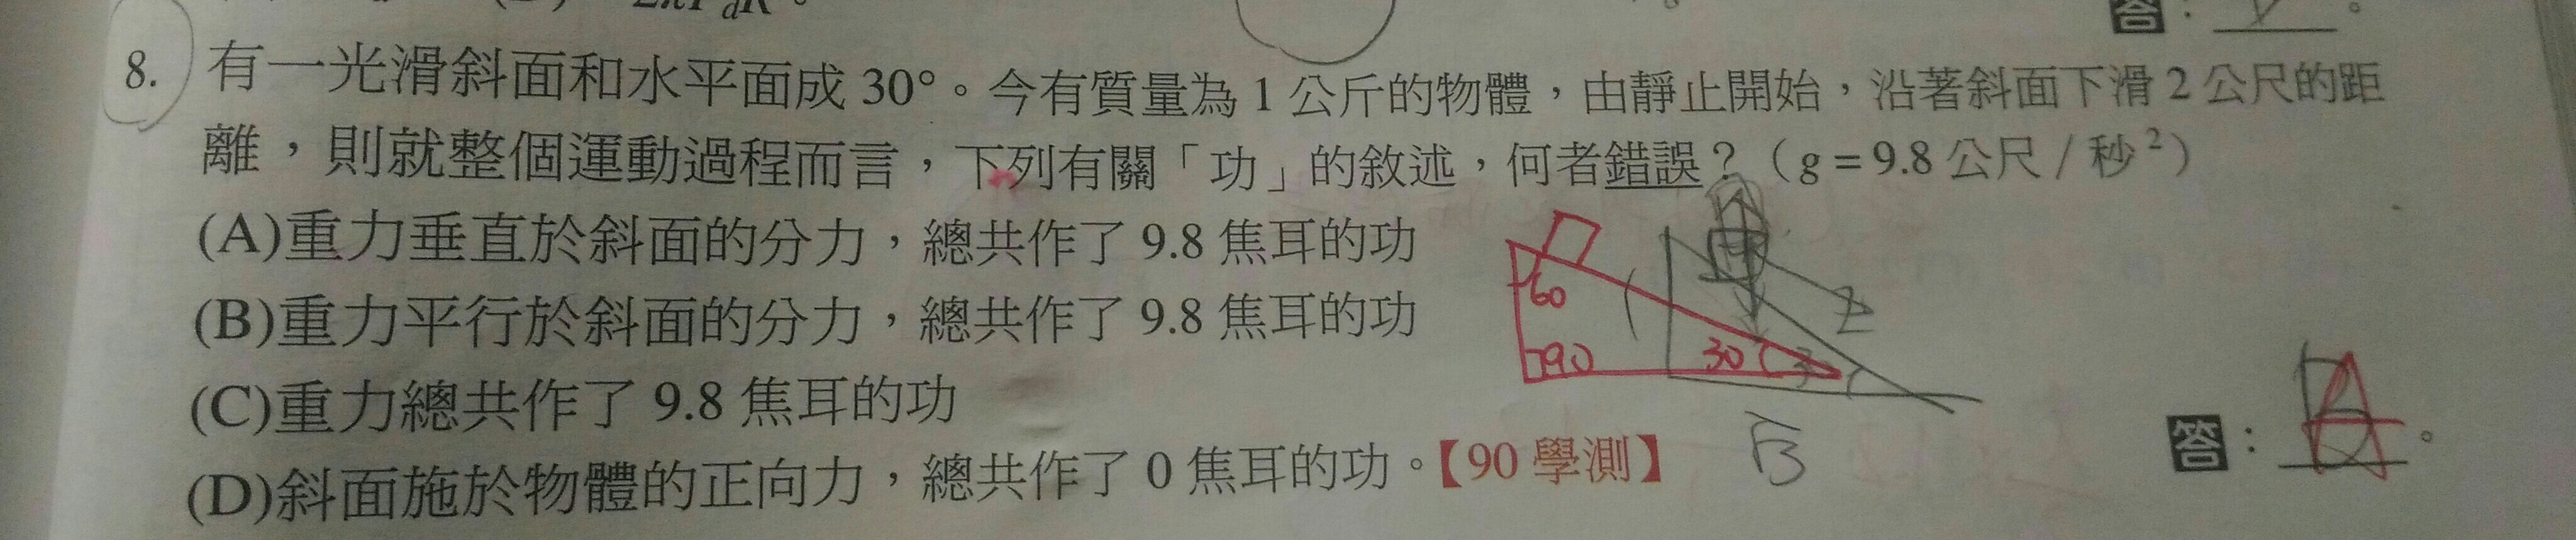 8. 有一光滑斜面和水平面成 30°。今有質量為 1 公斤的物體，由靜止開始，沿著斜面下滑 2 公尺的距
離，則就整個運動過程而言，下列有關「功」的敘述，何者錯誤？（g = 9.8 公尺 / 秒²）
(A)重力垂直於斜面的分力，總共作了 9.8 焦耳的功
(B)重力平行於斜面的分力，總共作了 9.8 焦耳的功
(C)重力總共作了 9.8 焦耳的功
(D)斜面施於物體的正向力，總共作了 0 焦耳的功。【90 學測】
60
90
30
2
答：A。